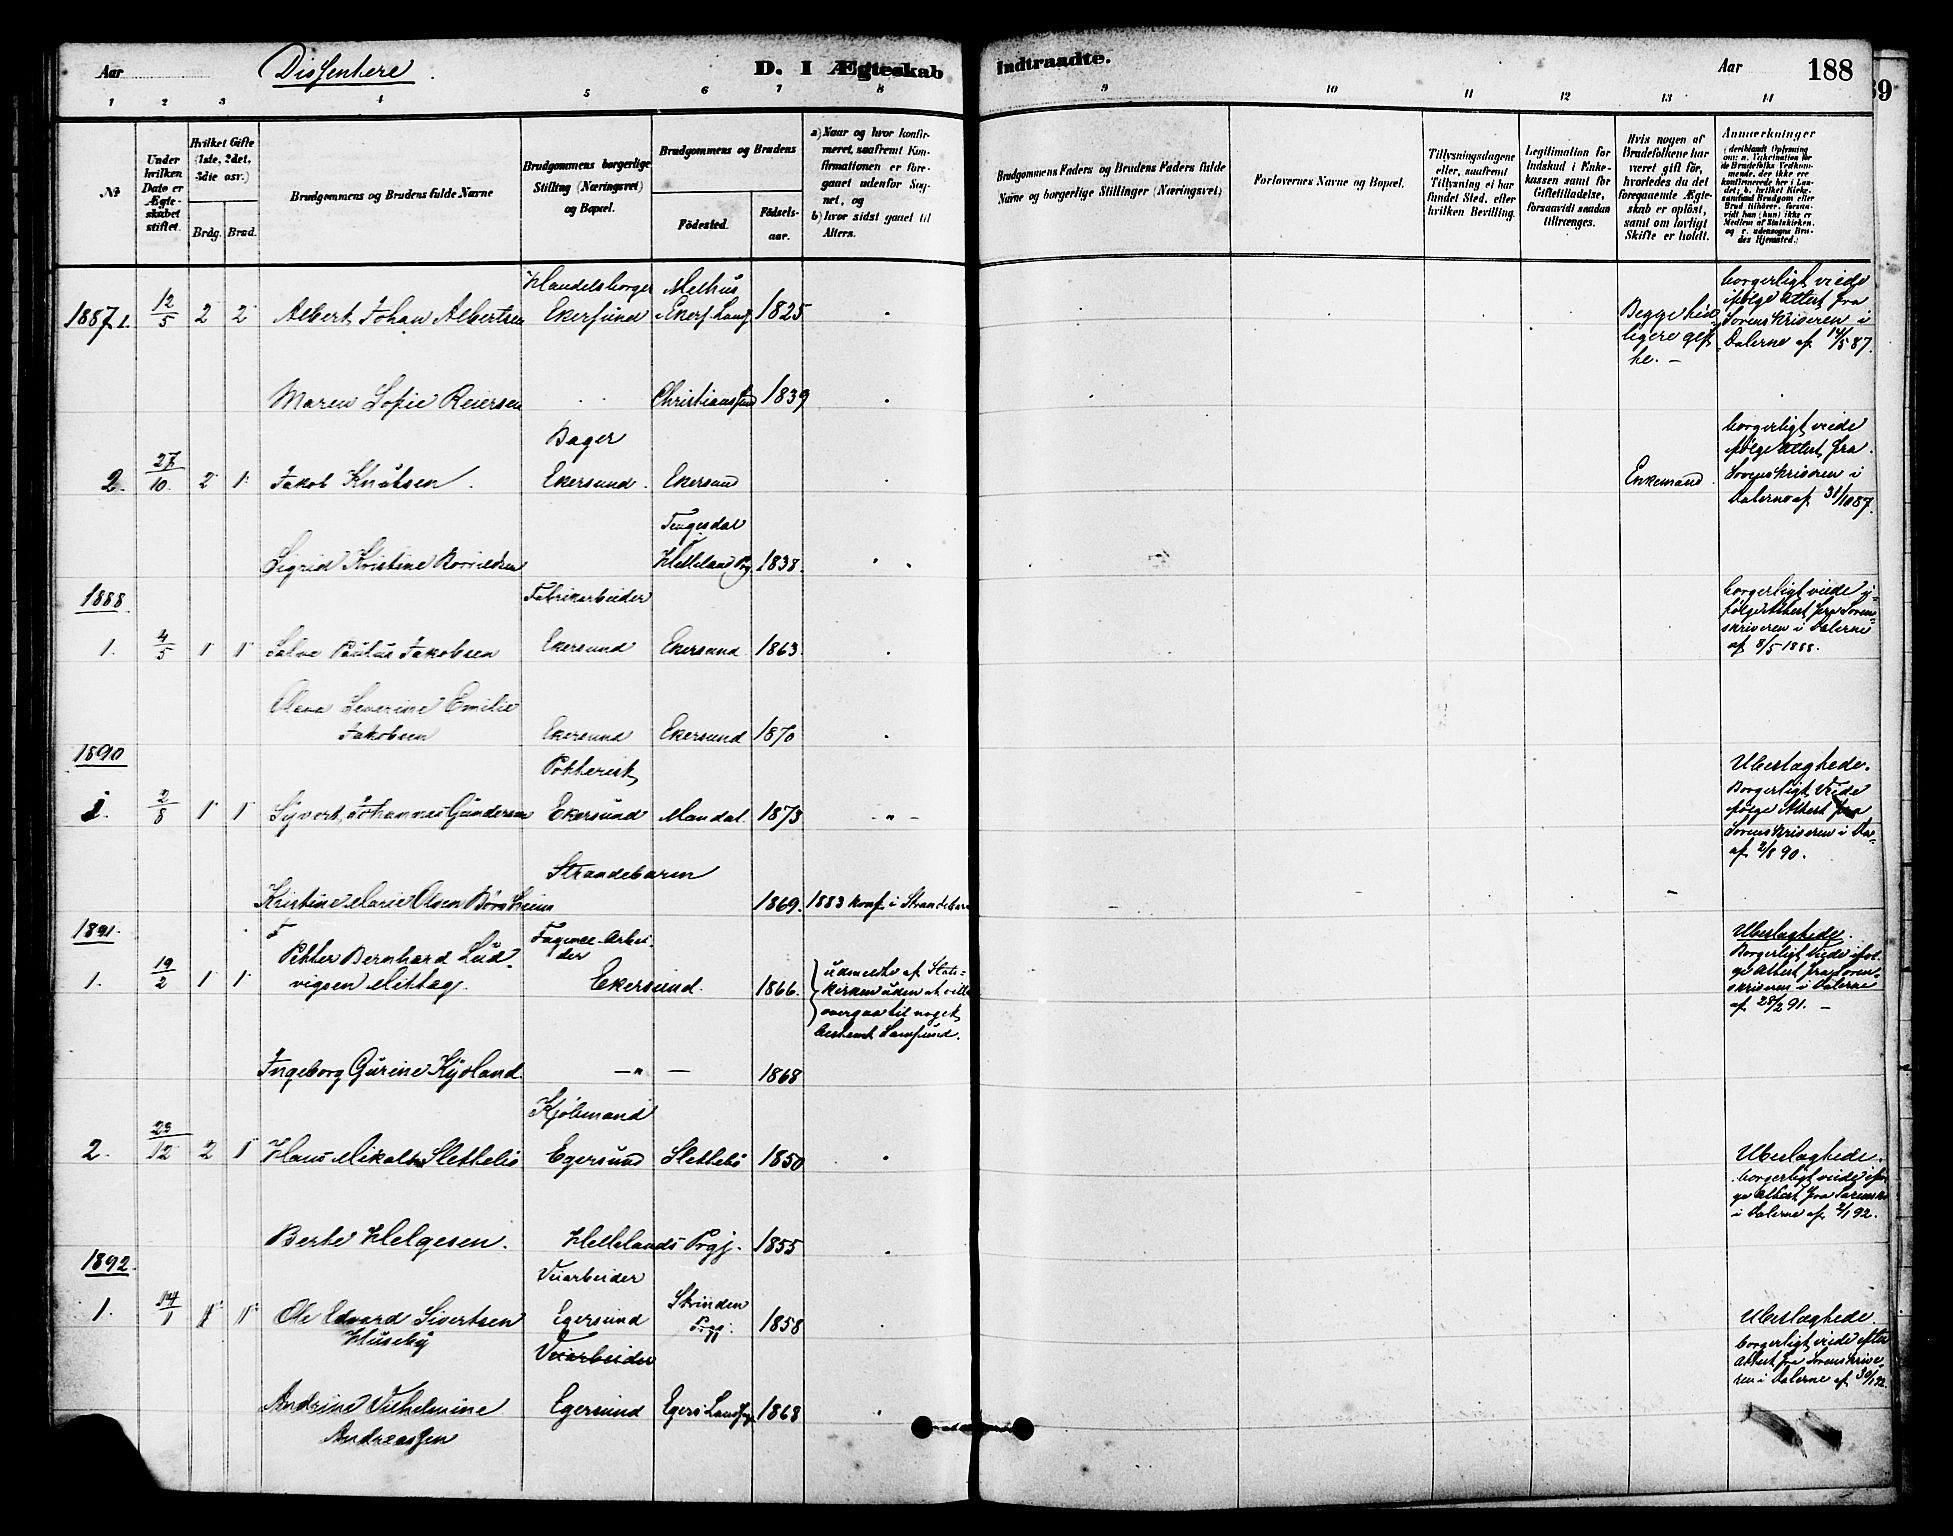 Aar
Dissentere
D. I Ægteskab
Indtraadte.
Aar
188
89
1 2 3 4 5 6 7 8
9 10 11 12 13 14
No
Under hvilken Dato er Ægteskabet stiftet.
Hvilket Gifte (1ste, 2det, 3die osv.)
Brdg. Brud.
Brudgommens og Brudens fulde Navne
Brudgommens borgerlige Stilling (Næringsvei) og Bopæl.
Brudgommens og Brudens
Fødested.
Fødselsaar.
a) Naar og hvor konfirmeret, saafremt Konfirmationen er foregaaet udenfor Sognet, og
b) hvor sidst gaaet til Alters.
Brudgommens Faders og Brudens Faders fulde Navne og borgerlige Stillinger (Næringsvei).
Forlovernes Navne og Bopæl.
Tillysningsdagene eller, saafremt Tillysning ei har fundet Sted, efter hvilken Bevilling.
Legitimation for Indskud i Enkekassen samt for Giftetilladelse, forsaavidt saadan tiltrænges.
Hvis nogen af Brudefolkene har været gift før, hvorledes da det foregaaende Ægteskab er opløst, samt om lovligt Skifte er holdt.
Anmærkninger
(deriblandt Oplysning om: a. Vakcination for de Brudefolks Vedkommende, der ikke ere konfirmerede her i Landet; b. hvilket Kirkesamfund Brudgom eller Brud tilhører, forsaavidt han (hun) ikke er Medlem af Statskirken, og c. udensogns Brudes Hjemsted.)
1887 1. 12/5 2 2 Albert Johan Albertsen Handelsborger Ekersund Melhus Ekers. Lands. 1825
Begge tidligere gifte. —
borgerligt viede ifølge Attest fra Sorenskriveren i Dalerne af 14/5 87.
Maren Sofie Reiersen Christianssund 1839
2. 27/10 2 1 Jakob Knutsen. Bager Ekersund. Ekersund
Enkemand
borgerligt viede ifølge Attest fra Sorenskriveren i Dalerne af 31/10 87.
Sigrid Kristine Torrildsen Tengesdal Helleland Prg. 1838.
1888
1. 4/5 1 1 Salve Paulus Jakobsen Fabrikarbeider Ekersund Ekersund 1863
borgerligt viede ifølge Attest fra Sorenskriveren i Dalerne af 8/5 1888.
Olava Severine Emilie Jakobsen Ekersund Ekersund 1870
1890
1. 2/8 1 1 Syvert Johannes Gundersen Potterist Ekersund Mandal 1873 " -
Ubeslægtede. Borgerligt Viede ifølge Attest fra Sorenskriveren i Da= af 2/8 90.
Kristine Marie Olsen Børsheim Strandebarm 1869. 1883 konf. i Strandebarm
1891.
1. 19/2 1 1 Petter Bernhard Ludvigsen Mittag. Fayence-Arbeider Ekersund. 1866. udmeldt af Statskirken uden at ville overgaa til noget bestemt Samfund.
Ubeslægtede. Borgerligt Viede ifølge Attest fra Sorenskriveren i Dalerne af 28/2 91. —
Ingeborg Gurine Kydland — " — 1868
2. 23/12 2 1 Hans Mikalsen Slettebø Kjøbmand Egersund Slettebø 1850
Ubeslægtede. borgerligt viede ifølge Attest fra Sorenskr. i Dalerne af 2/1 92.
Berte Helgesen. Hellelands Prgj. 1855
1892.
1. 14/1 1 1 Ole Edvard Sivertsen Huseby Veiarbeider Egersund Strinden Prgj. 1858
Ubeslægtede. borgerligt viede efter Attest fra Sorenskriveren i Dalerne af 30/1 92.
Andrine Vilhelmine Andreassen Veiarbeider Egersund Egers. Lands. 1868